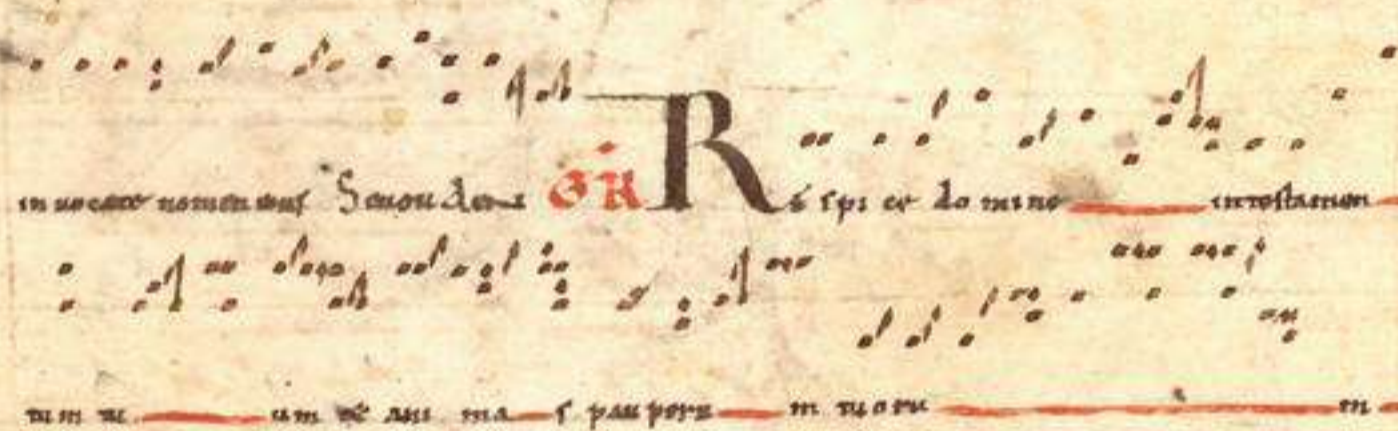 invocare nomen tuus Seuouae GR Respice domine in testamen
tum tu um et ani ma s pauperu m tuoru m